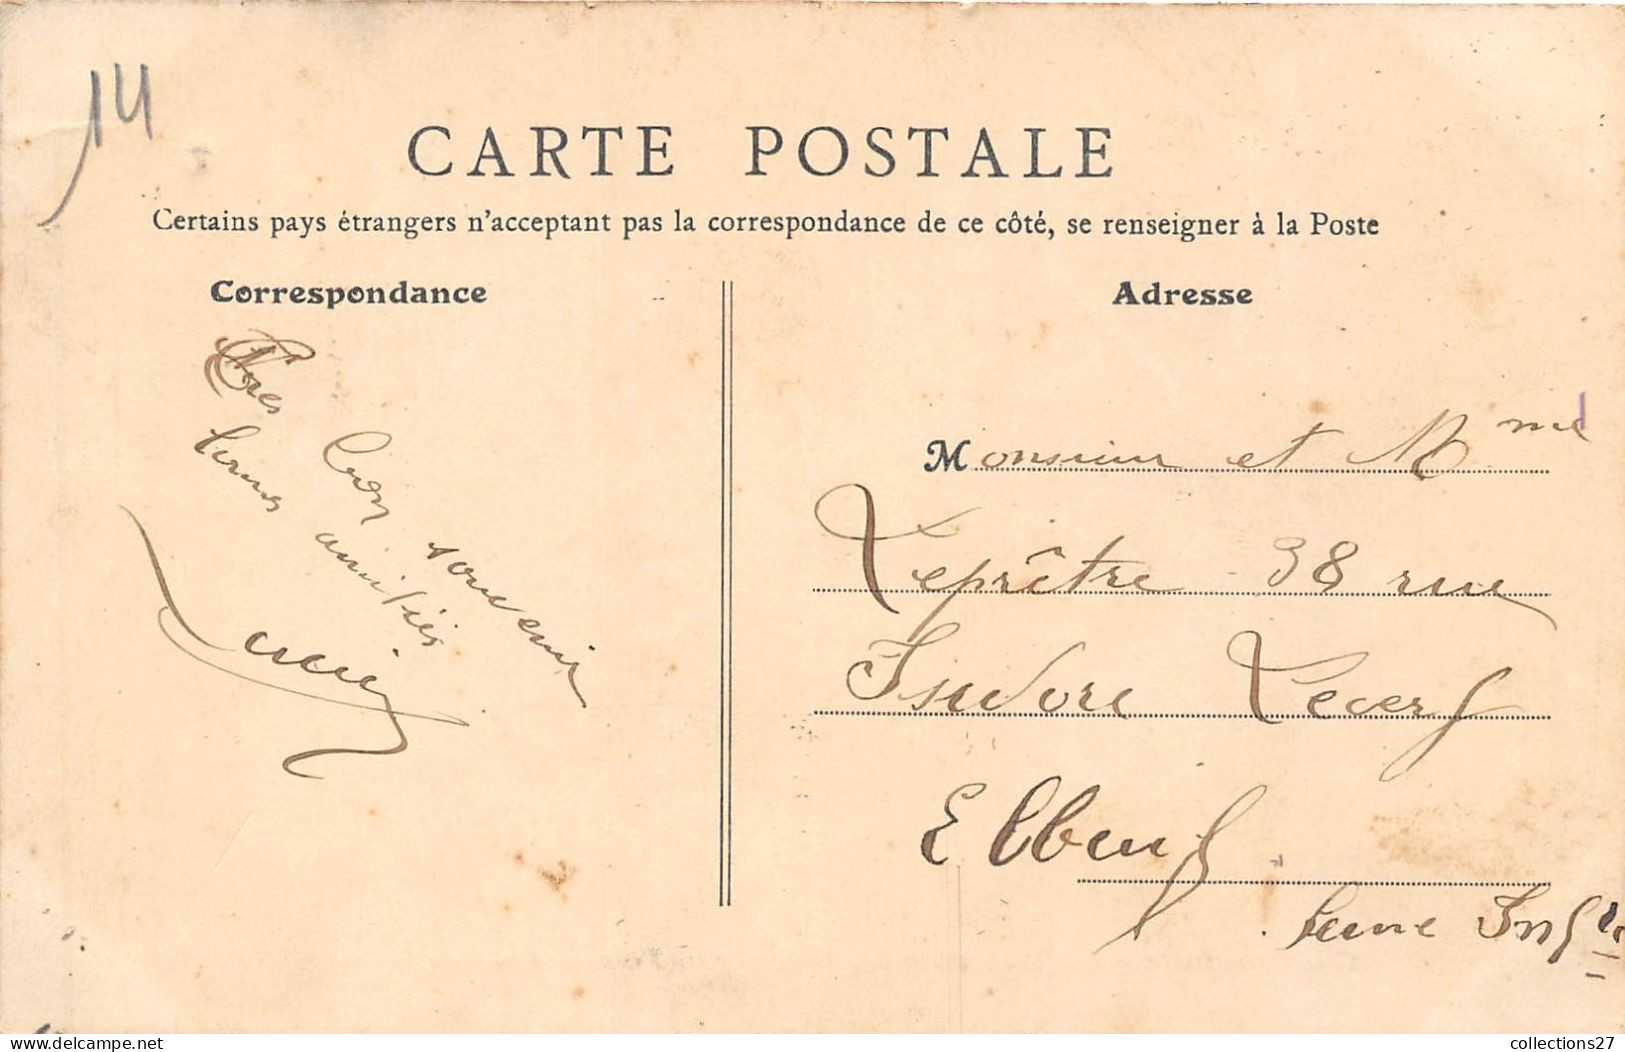 14
CARTE POSTALE
Certains pays étrangers n'acceptant pas la correspondance de ce côté, se renseigner à la Poste
Correspondance
bon souvenir
amitiés
Lucie
Adresse
Monsieur et Mme
Leprêtre 38 rue
Isidore Lecerf
Elbeuf
Seine Infre
delcampe.net
collections27